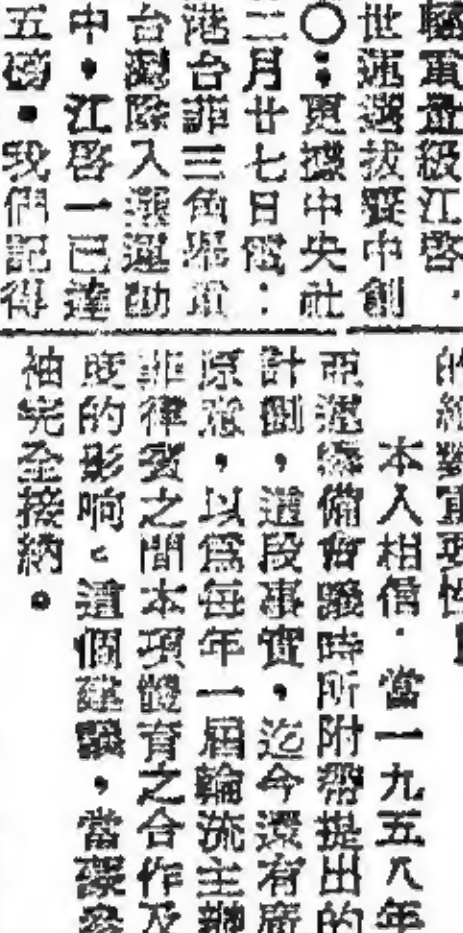 輕重量級江啓，
世運選拔賽中創
〇；更據中央社
二月廿七日電：
港台菲三角舉重
台灣隊入選運動
中，江啓一已達
五磅，我們記得
的絕對重要性！
本人相信，當一九五八年
亞運籌備會議時所附帶提出的
計劃，這段事實，迄今還有
原意，以爲每年一屆輪流主辦
菲律賓之間本項體育之合作及
的影响。這個建議，當
袖完全接納。